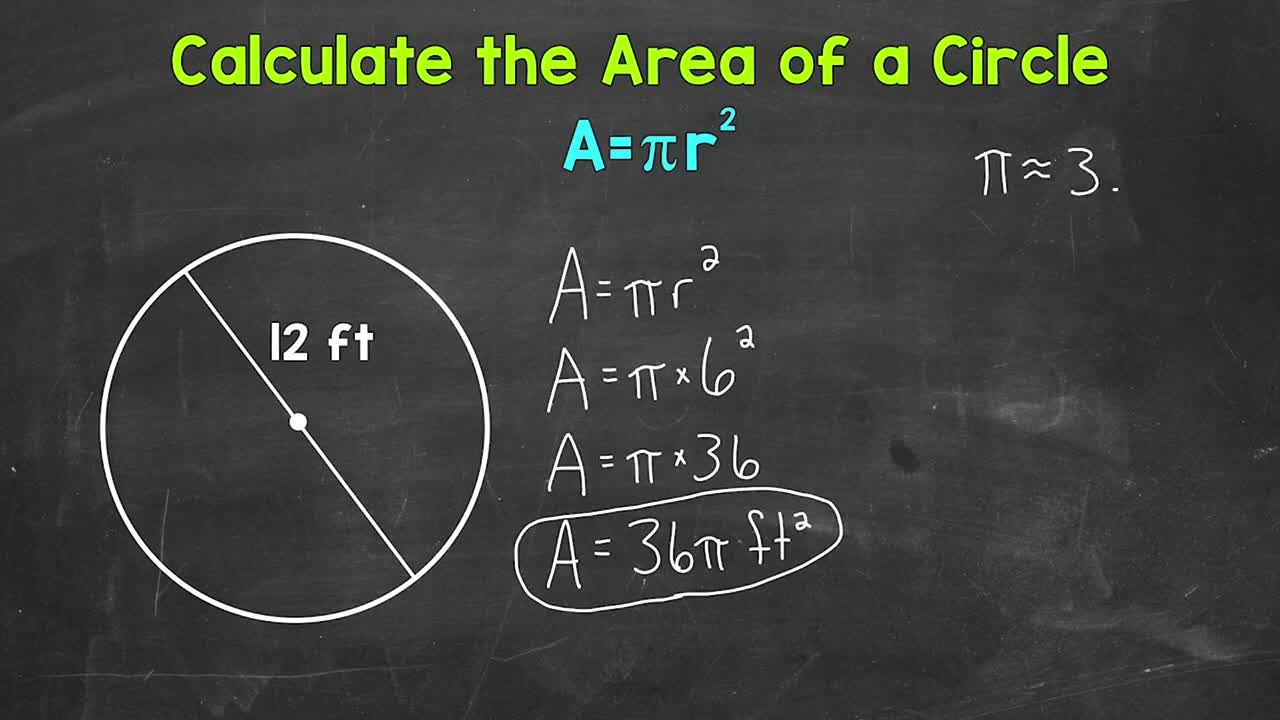 Calculate the Area of a Circle
A=πr²
π≈3.
12 ft
A=πr²
A=π×6²
A=π×36
A=36π ft²